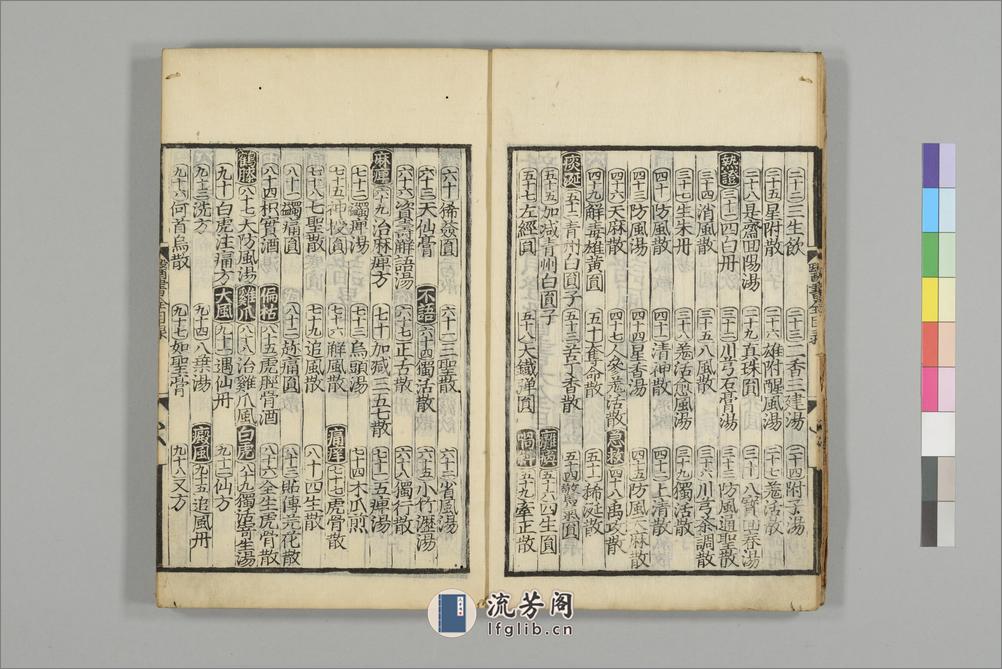 二十二三生飲 二十三二香三建湯 二十四附子湯
二十五星附散 二十六雄附醒風湯 二十七羗活散
二十八是齋回陽湯 二十九真珠圓 三十八寶回春湯
熱證 三十一四白丹 三十二川芎石膏湯 三十三防風通聖散
三十四消風散 三十五八風散 三十六川芎茶調散
三十七生朱丹 三十八羗活愈風湯 三十九獨活散
四十防風散 四十一清神散 四十二上清散
四十三防風湯 四十四星香湯 四十五防風天麻散
四十六天麻散 四十七人參羗活散 急救 四十八禹攻散
四十九解毒雄黄圓 五十奪命散 五十一稀涎散
痰涎 五十二青州白圓子 五十三苦丁香散 五十四驚氣圓
五十五加减青州白圓子 癱瘓 五十六四生圓
五十七左經圓 五十八大鐵彈圓 喎斜 五十九牽正散
六十俻急圓 六十一三聖散 六十二省風湯
六十三天仙膏 不語 六十四獨活散 六十五小竹瀝湯
六十六資壽解語湯 六十七正舌散 六十八獨行散
麻痺 六十九治麻痺方 七十加减三五七散 七十一五痺湯
七十二蠲痺湯 七十三烏頭湯 七十四木瓜煎
七十五神授圓 七十六解風散 痛痺 七十七虎骨散
七十八七聖散 七十九追風散 八十四生散
八十一蠲痛圓 八十二趂痛圓 八十三貼傳芫花散
八十四枳實酒 偏枯 八十五虎脛骨酒 八十六全生虎骨散
鶴膝 八十七大防風湯 雞爪 八十八治雞爪風 白虎 八十九獨活寄生湯
九十白虎注痛方 大風 九十一遇仙丹 九十二仙方
九十三洗方 九十四八葉湯 癜風 九十五追風丹
九十六何首烏散 九十七如聖膏 九十八又方
流芳阁
lfglib.cn